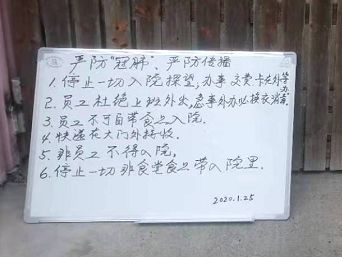 严防"冠肺"、严防传播
1. 停止一切入院探望，办事 交费卡在外等办
2. 员工杜绝上班外出，急事外办必换衣消毒
3. 员工不可自带食品入院.
4. 快递在大门外接收.
5. 非员工不得入院,
6. 停止一切非食堂食品带入院里.
2020.1.25